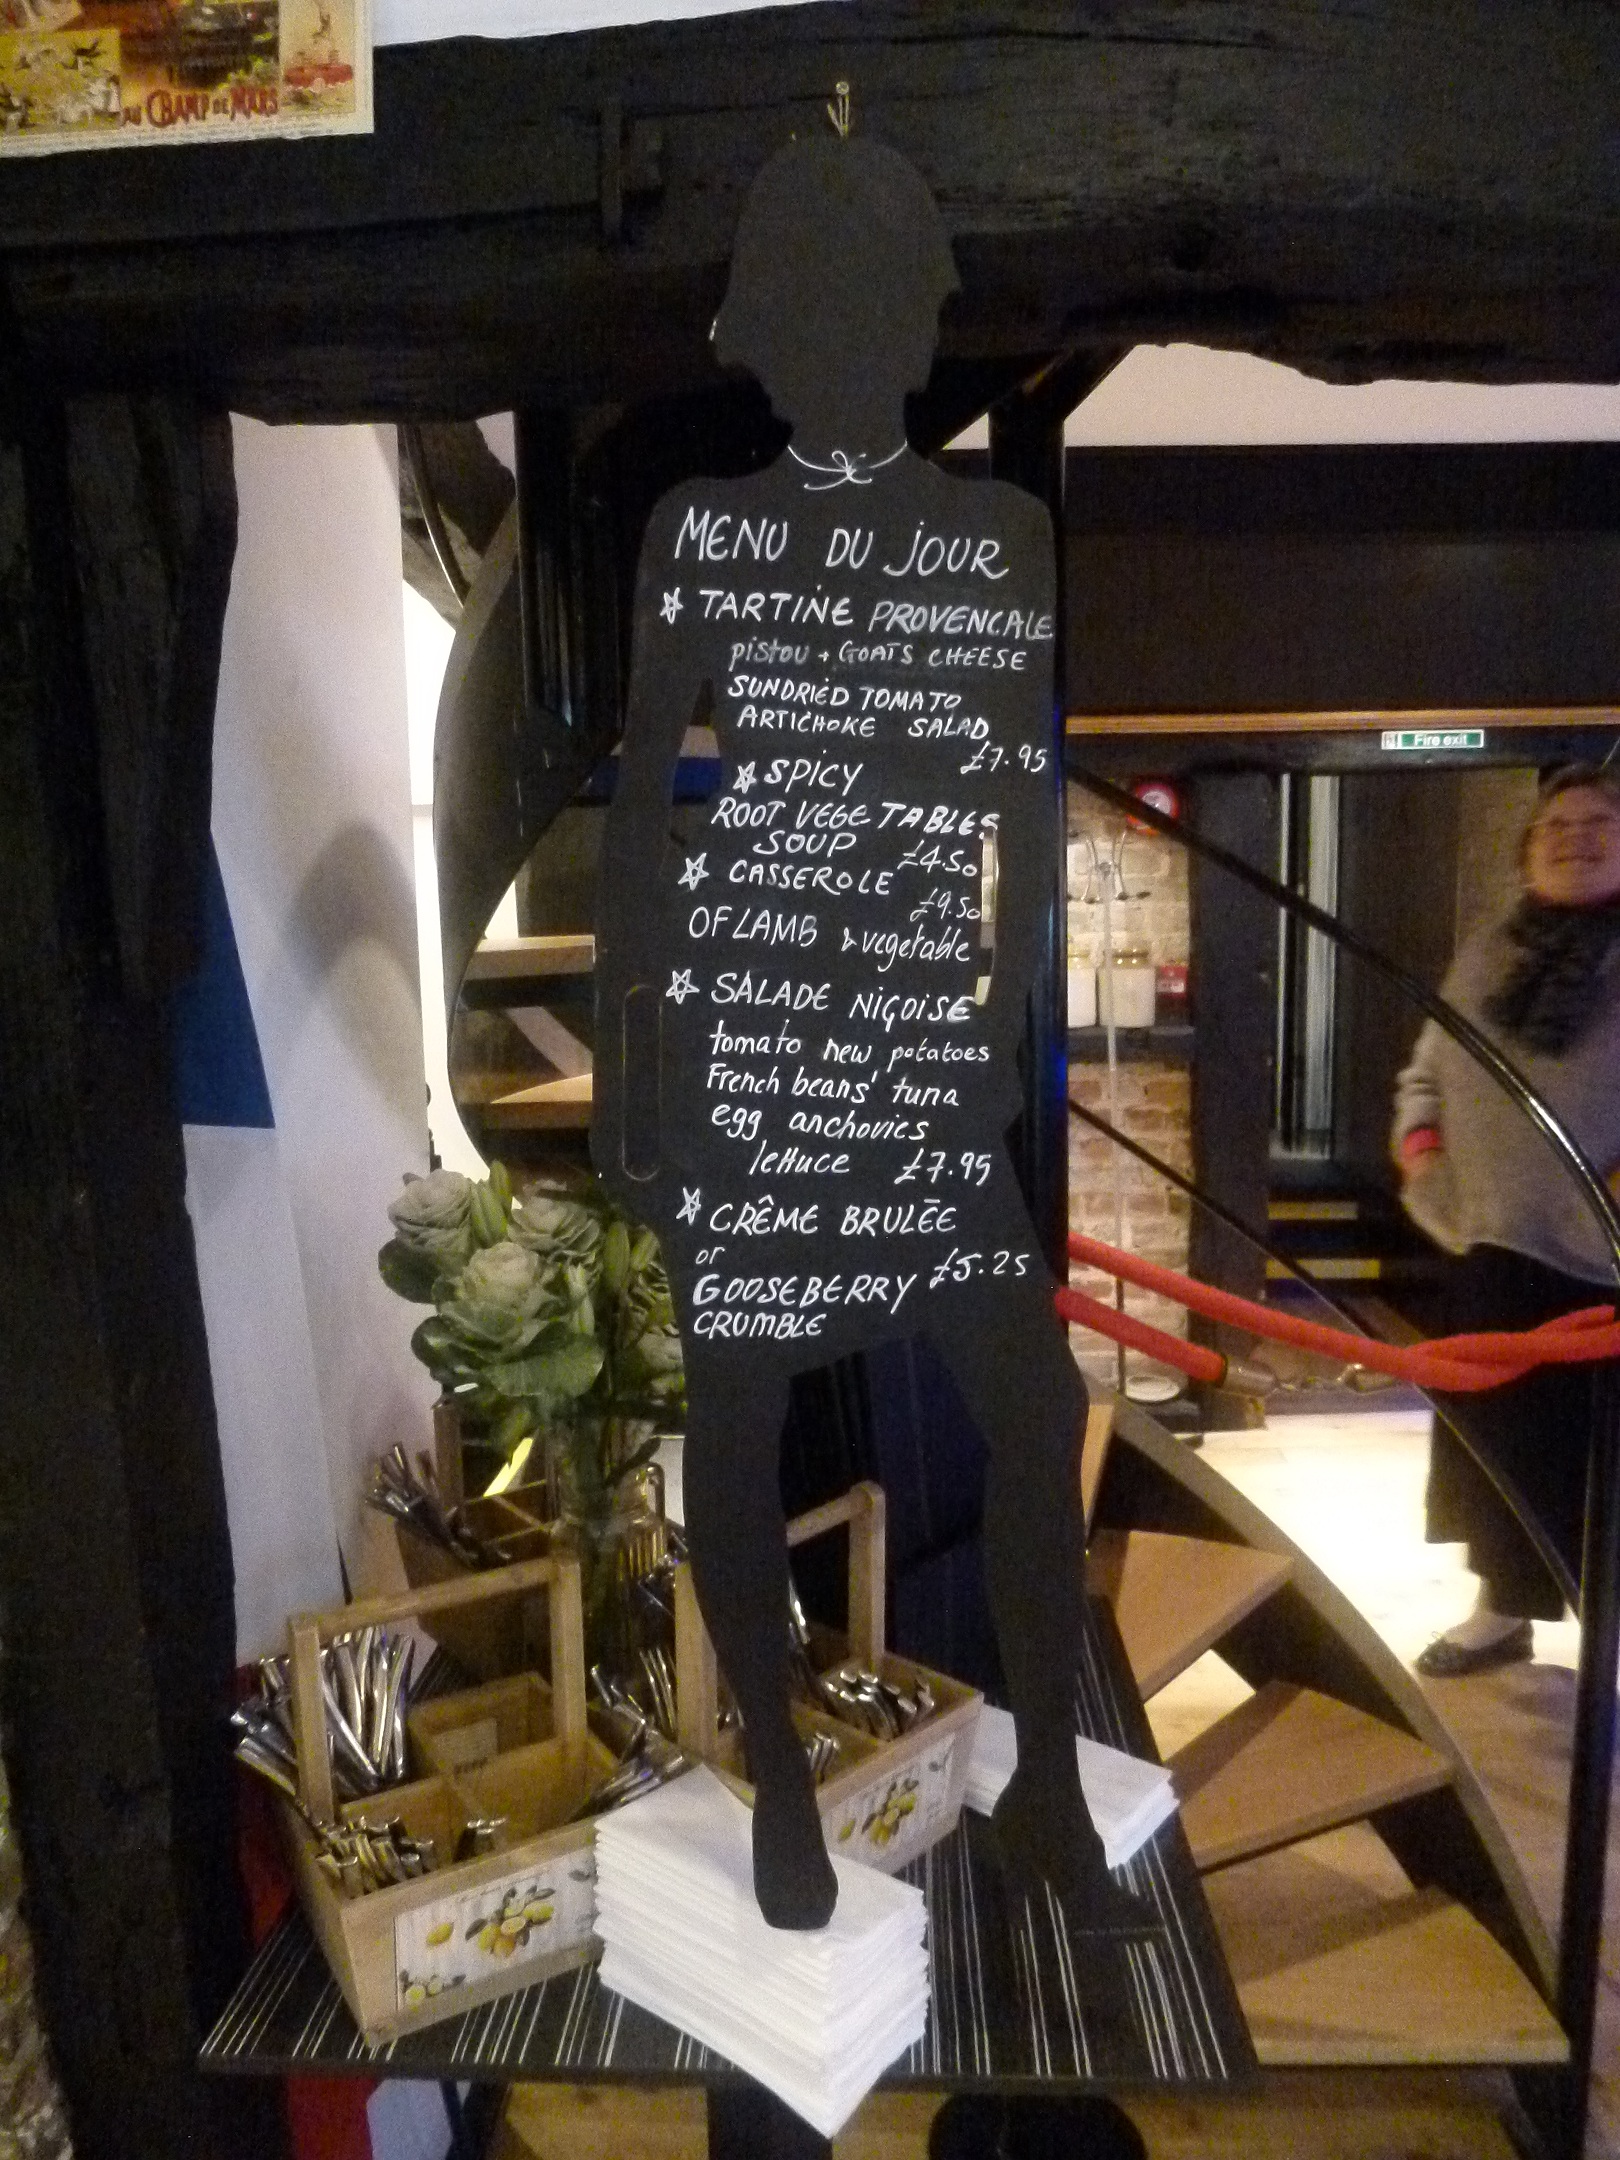 AU CHAMP DE MARS
MENU DU JOUR
TARTINE PROVENCALE
pistou + GOATS CHEESE
SUNDRIED TOMATO
ARTICHOKE SALAD
£7.95
SPICY
ROOT VEGETABLES
SOUP £4.50
CASSEROLE
£9.50
OF LAMB & vegetable
SALADE NIÇOISE
tomato new potatoes
French beans' tuna
egg anchovies
lettuce £7.95
CRÊME BRULĒE
or £5.25
GOOSEBERRY
CRUMBLE
Fire exit